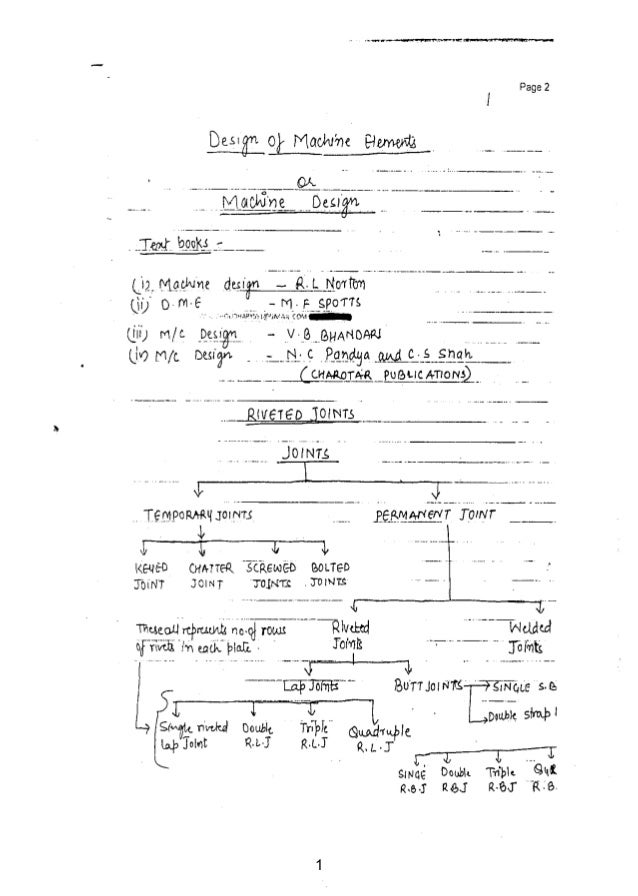 Page 2
1
Design of Machine Elements
or
Machine Design
Text books -
(i), Machine design - R.L Norton
(ii) D.M.E - M.F SPOTTS
(iii) M/C Design - V.B BHANDARI
(iv) M/C Design - N.C Pandya and C.S Shah
(CHAROTAR PUBLICATIONS)
RIVETED JOINTS
JOINTS
TEMPORARY JOINTS PERMANENT JOINT
KEYED CHATTER SCREWED BOLTED
JOINT JOINT JOINTS JOINTS
These all represents no.of rows Riveted Welded
of rivets in each plate. Joints Joints
Lap Joints BUTT JOINTS SINGLE S.B
Double strap
Single riveted Double Triple Quadruple
Lap Joint R.L.J R.L.J R.L.J
SINGE Double Triple
R.B.J R.B.J R.B.J R.B.
1